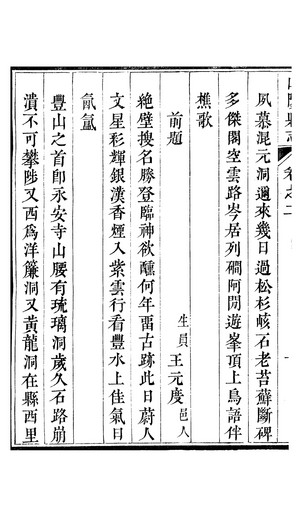 夙慕混元洞邇來幾日過松杉峐石老苔蘚斷碑
多傑閣空雲路岑居列磵阿閒遊峯頂上鳥語伴
樵歌
前題
生員王元度邑人
絶壁搜名勝登臨神欲醺何年畱古跡此日蔚人
文星彩輝銀漢香煙入紫雲行看豐水上佳氣日
氤氲
豐山之首卽永安寺山腰有琉璃洞歲久石路崩
潰不可攀陟又西爲洋簾洞又黃龍洞在縣西里
卷之二